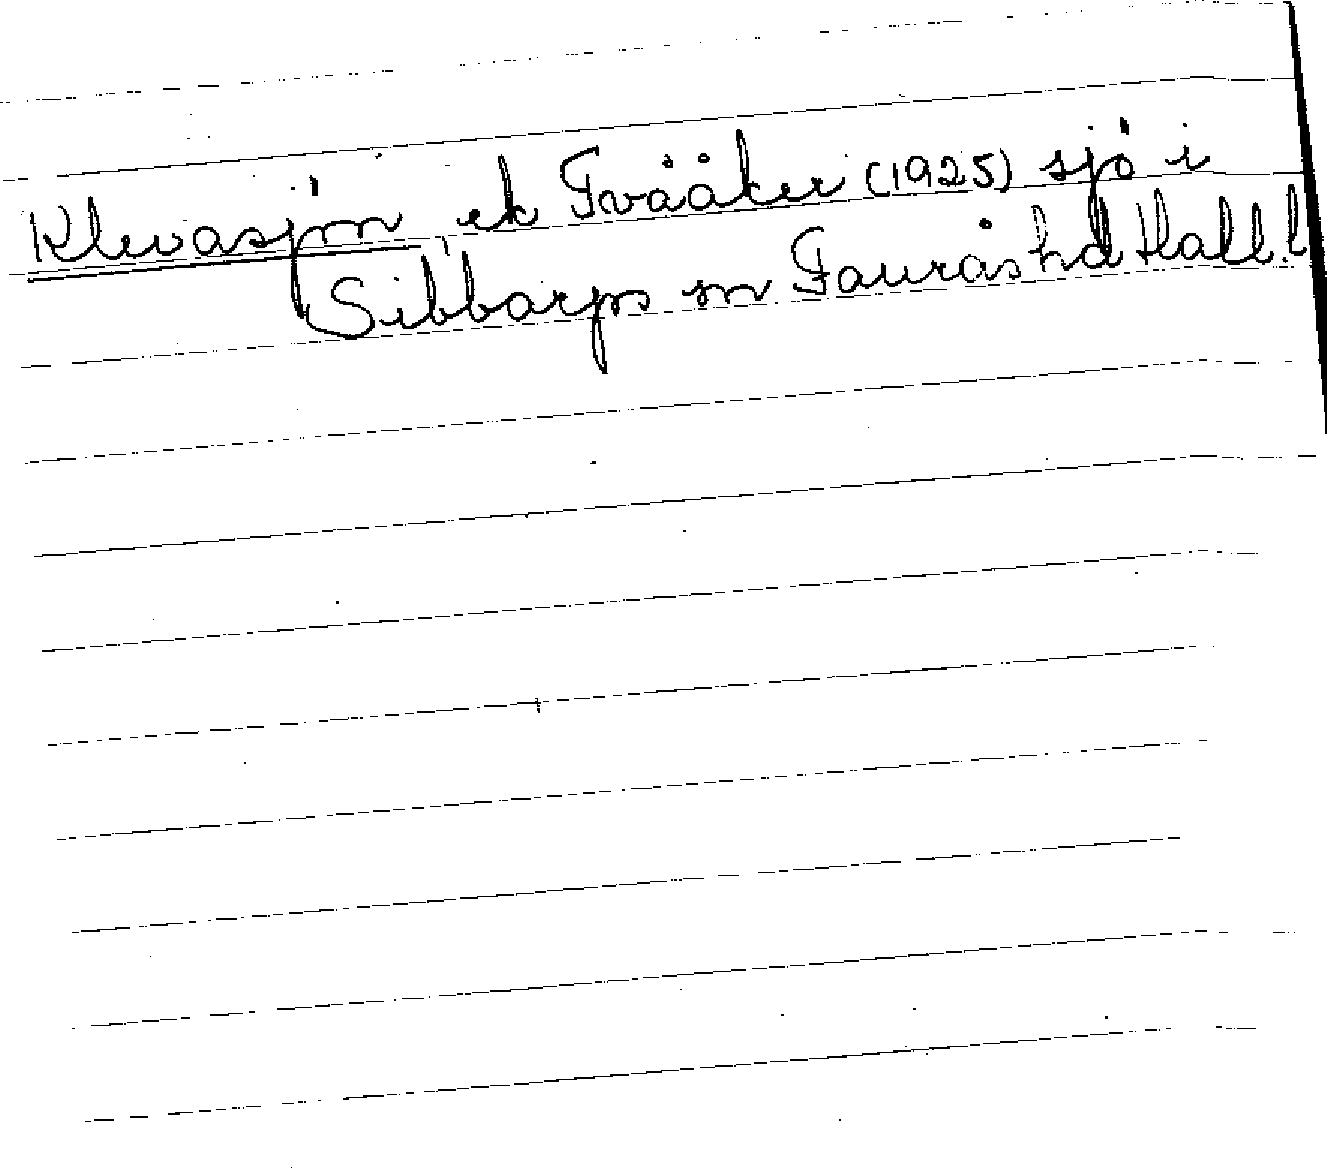 Klevasjön ek Tvååker (1925) sjö i
Sibbarps sn Faurås hd Hall. l